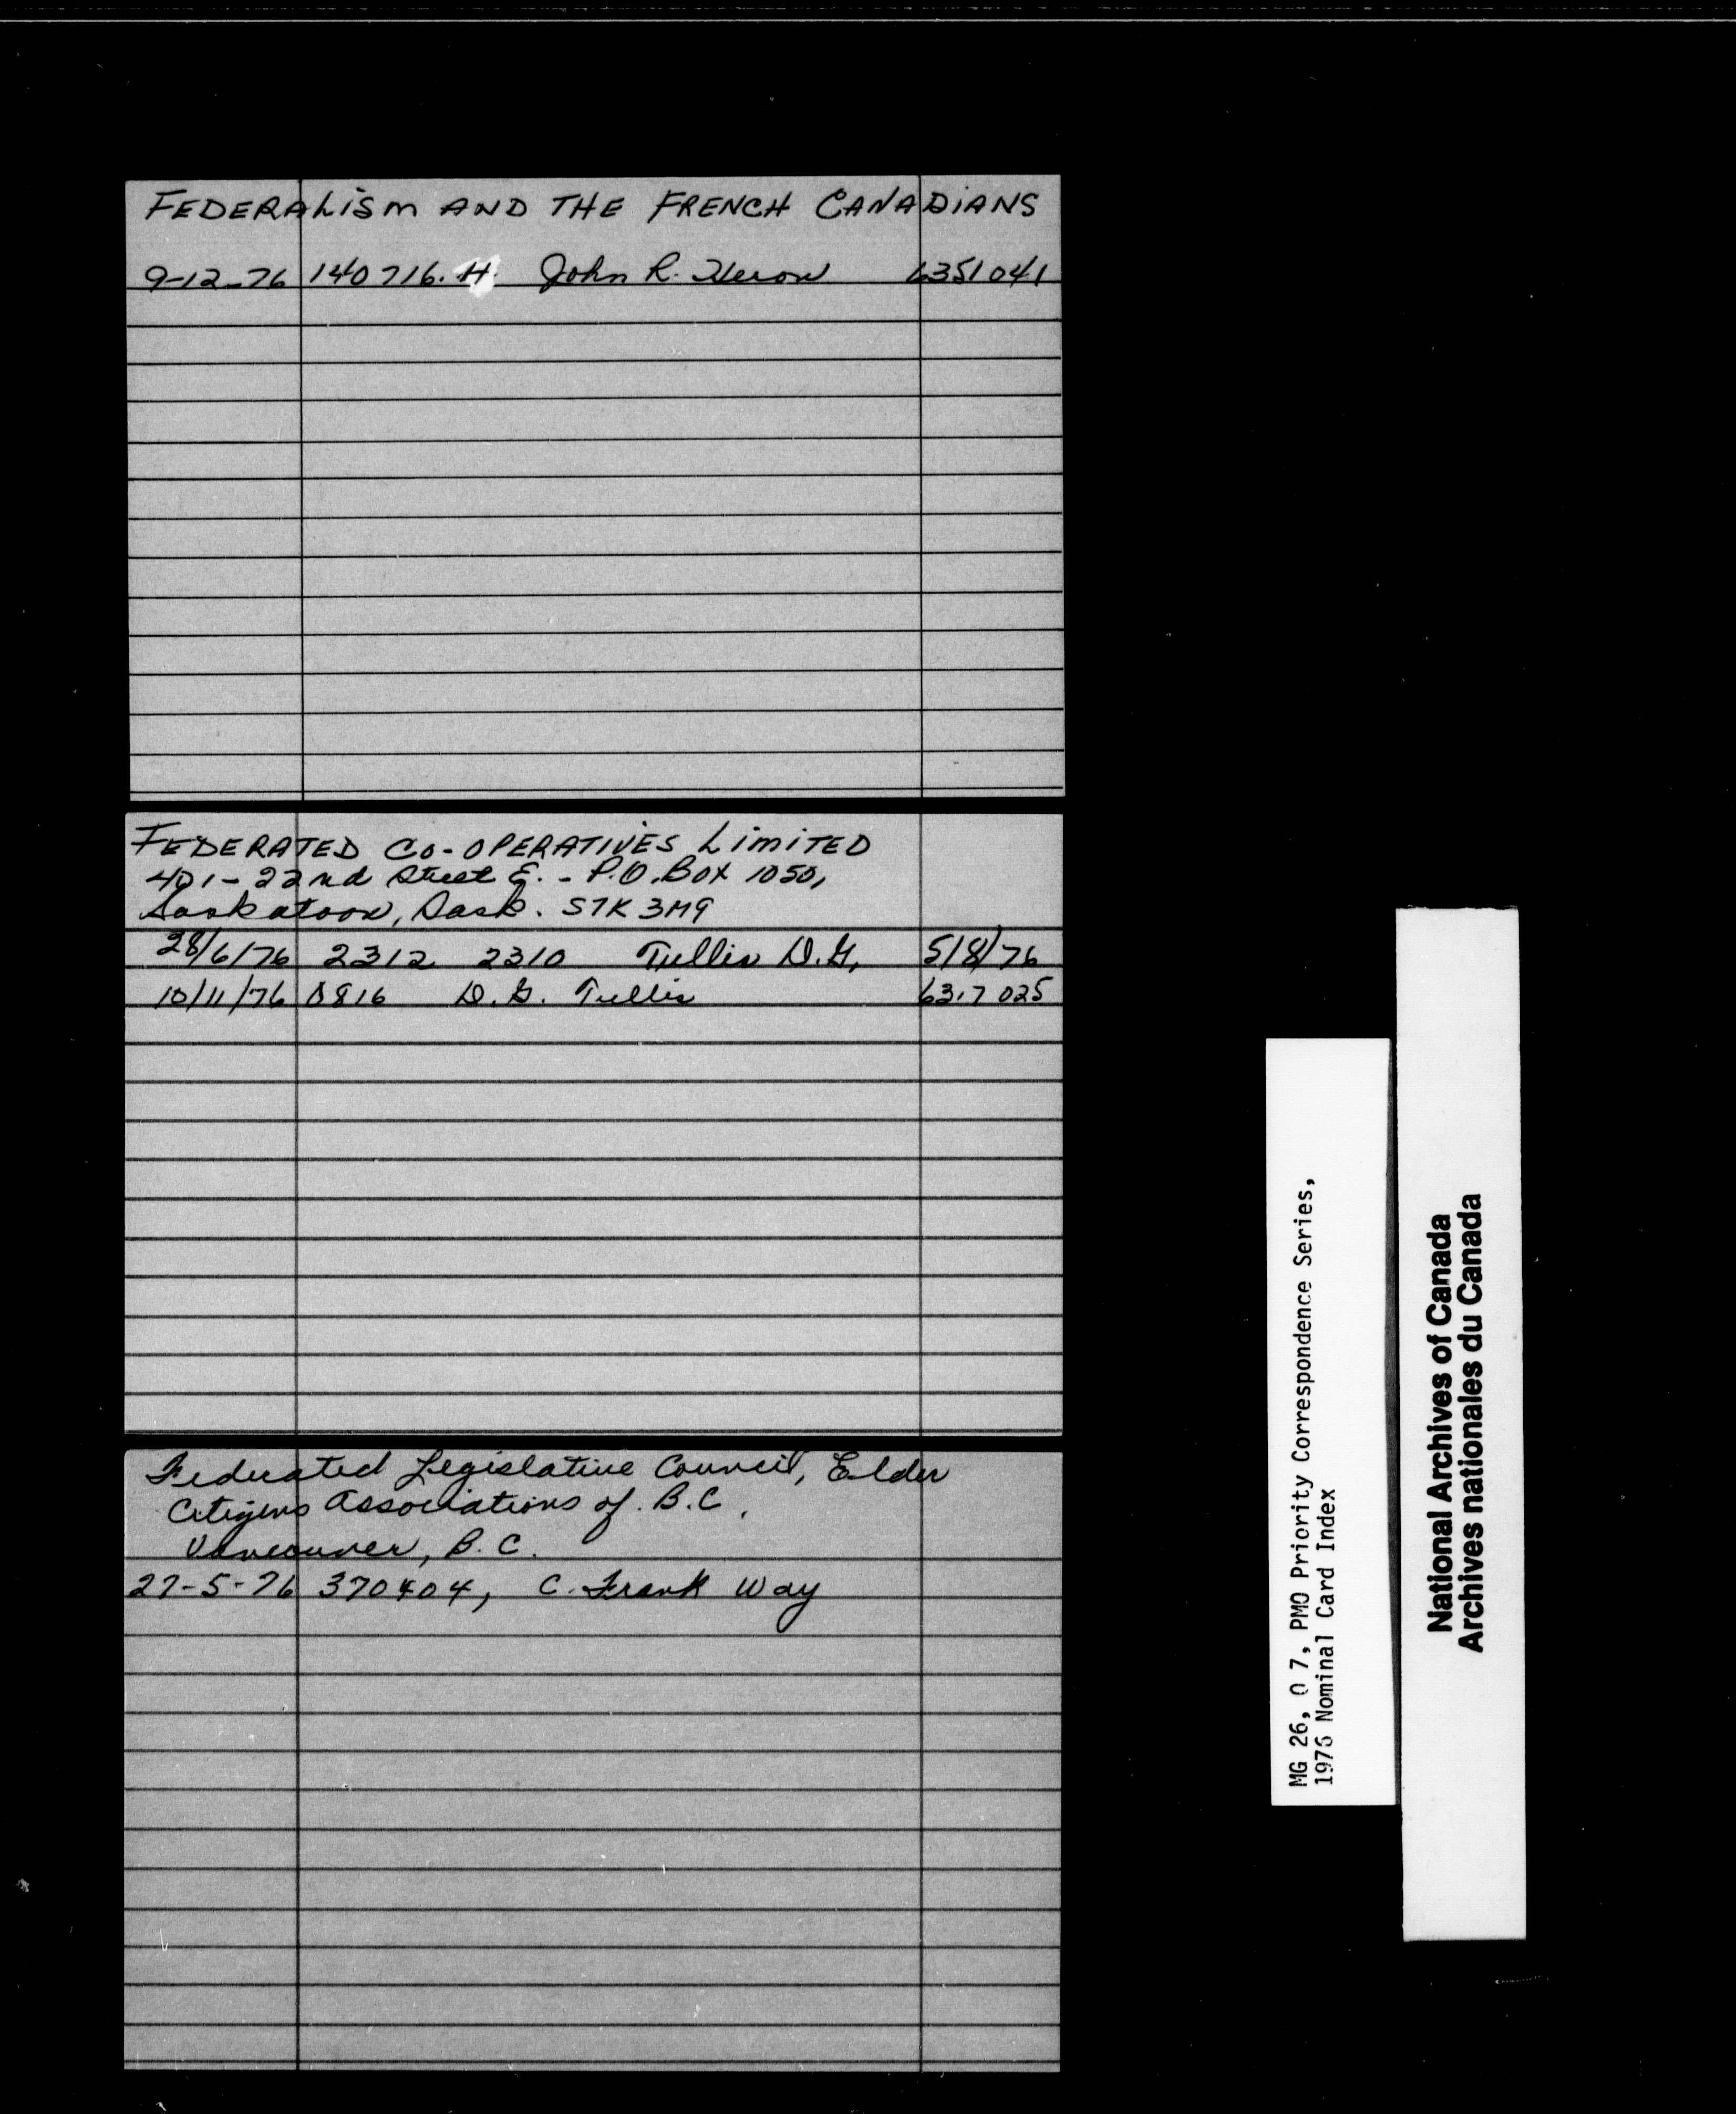 FEDERALISM AND THE FRENCH CANADIANS
9-12-76 140716. H. John R. Heron 6351041
FEDERATED CO-OPERATIVES LIMITED
401-22nd Street E. - P.O. Box 1050,
Saskatoon, Sask. S7K 3M9
28/6/76 2312 2310 Tullis D.G. 5/8/76
10/11/76 0816 D.G. Tullis 6317 025
Federated Legislative Council, Elder
Citizens Associations of B.C.
Vancouver, B.C.
27-5-76 370404, C. Frank Way
MG 26, O 7, PMO Priority Correspondence Series,
1976 Nominal Card Index
National Archives of Canada
Archives nationales du Canada